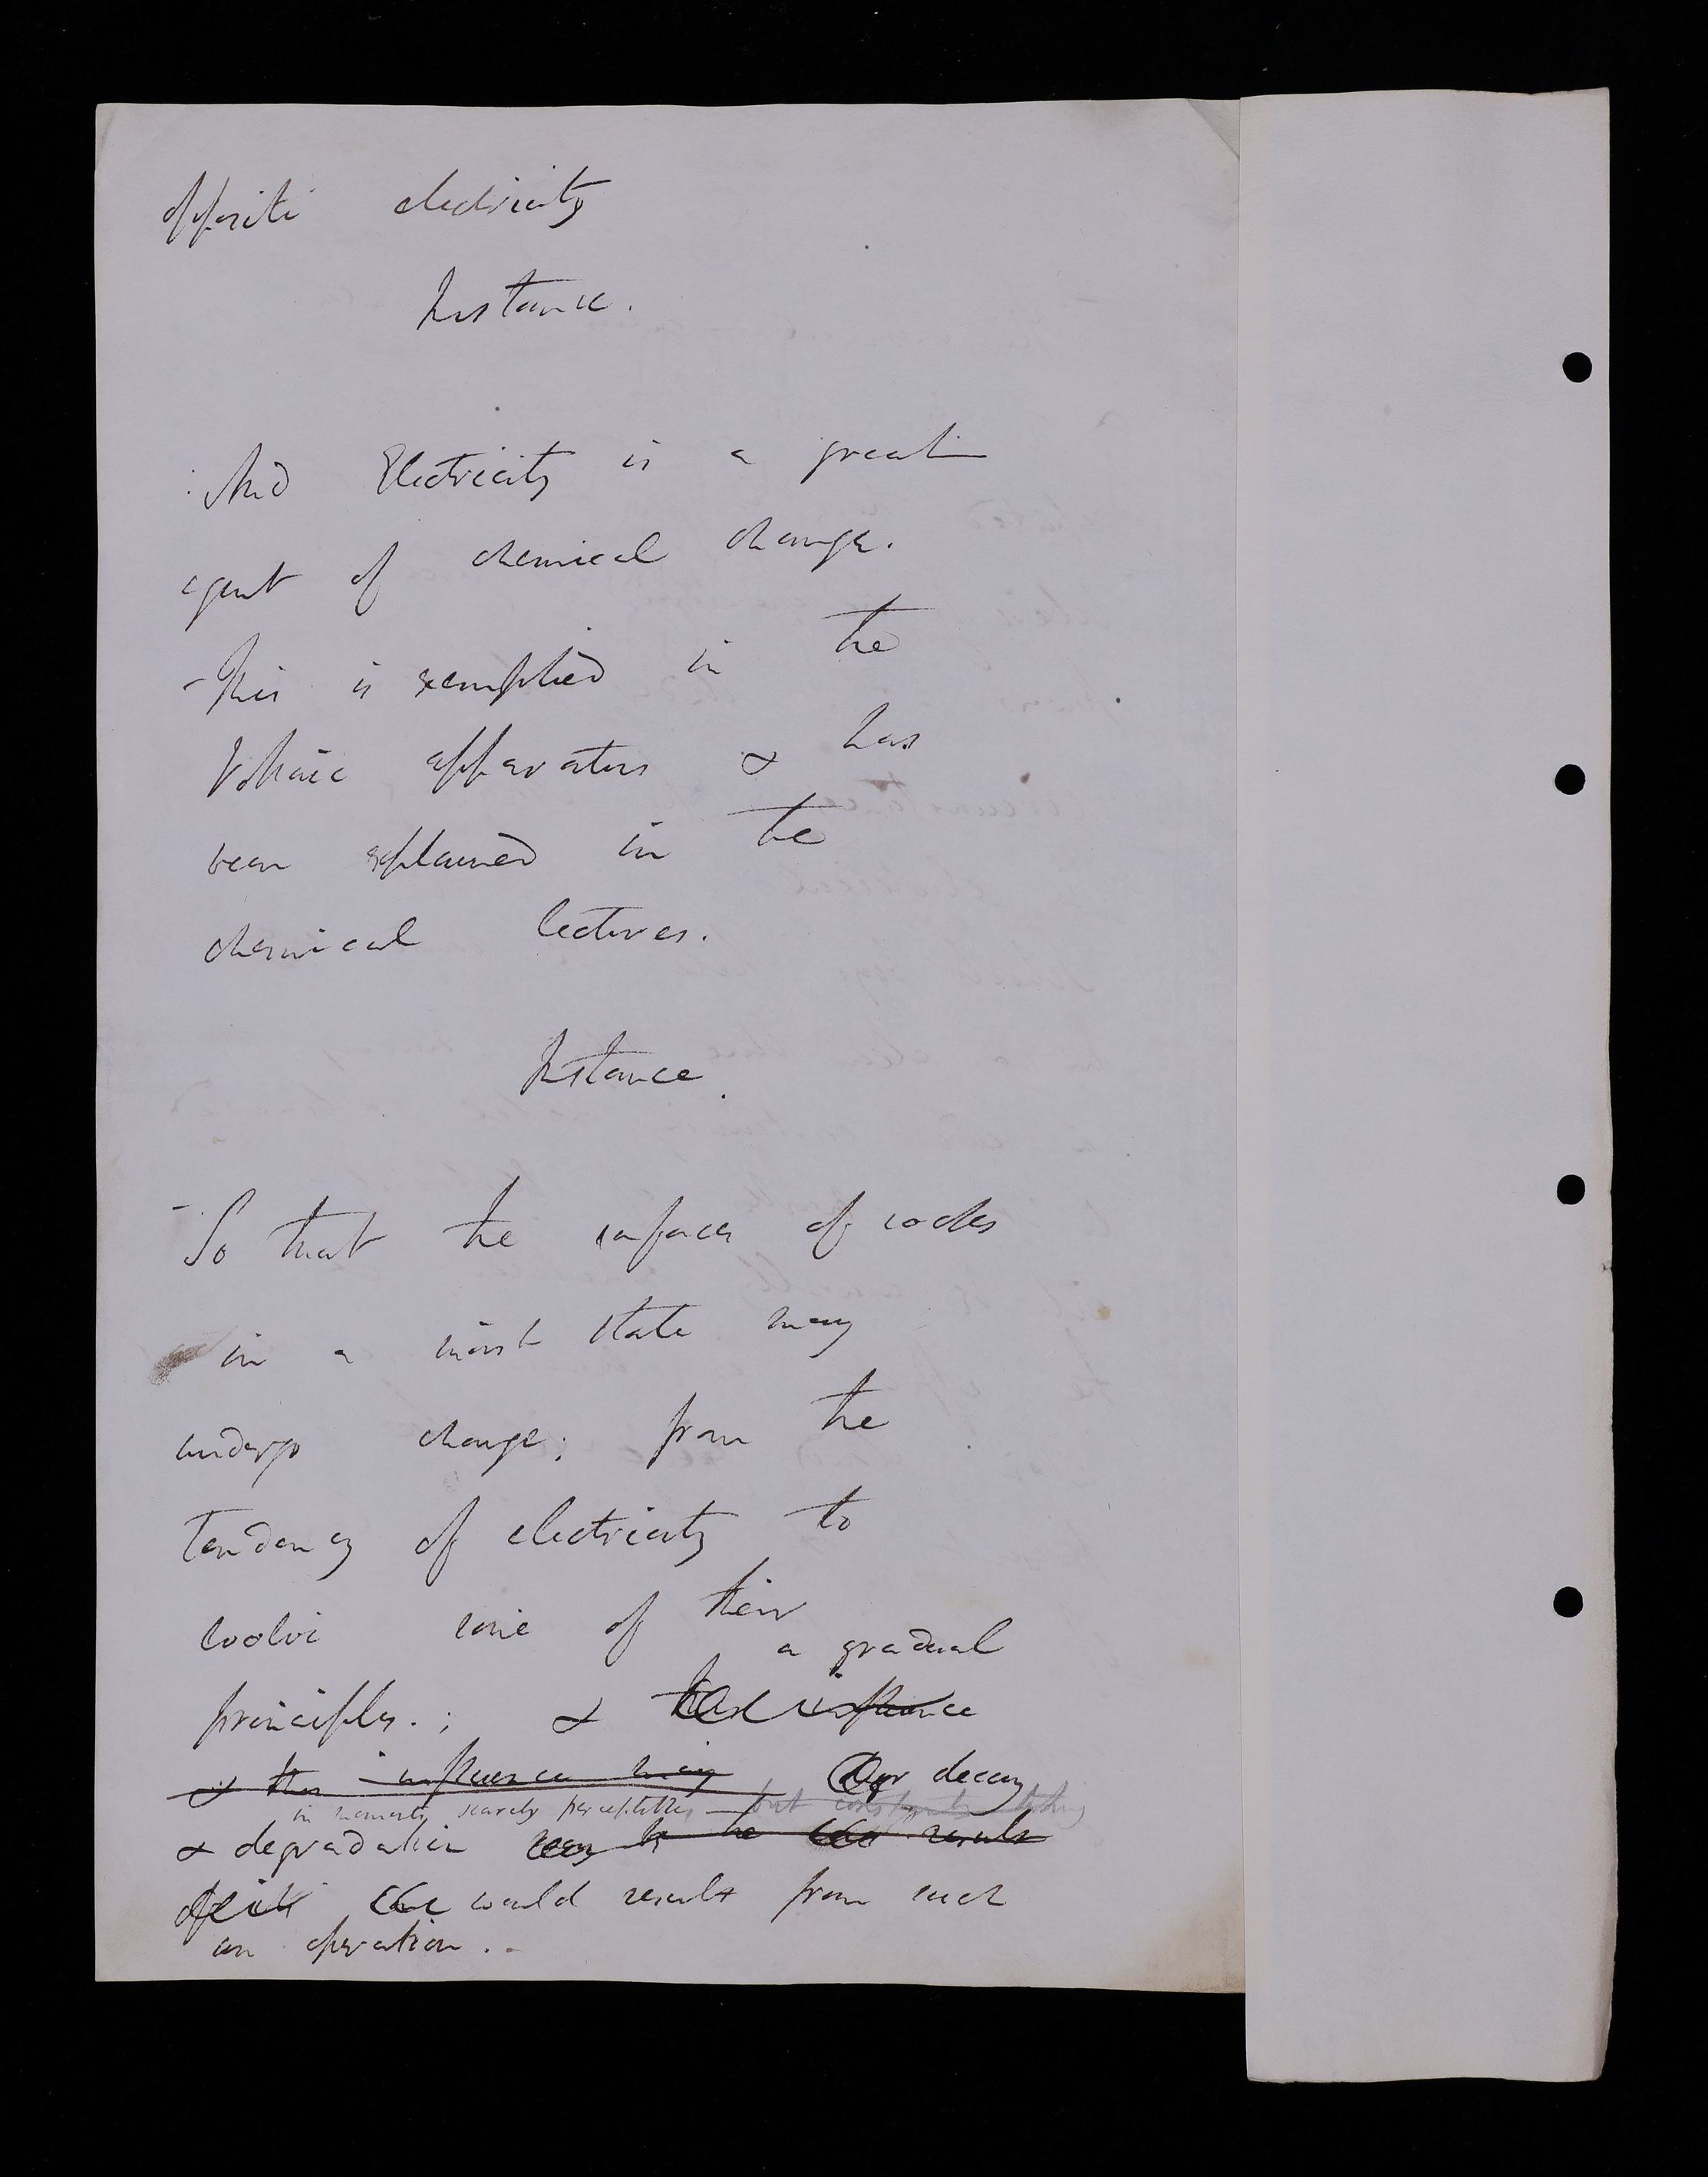 opposite electricity
Instance.
: And Electricity is a great
agent of chemical change.
- This is exemplied in the
Voltaic apparatus & has
been explained in the
chemical lectures.
Instance.
- So that the surfaces of rocks
in a moist state may
undergo change; from the
tendency of electricity to
evolve some of their
a gradual
principles. ; & influence
& this influence may decay
in moments scarcely perceptible but constantly
& degradation be the result
would result from such
an operation ..